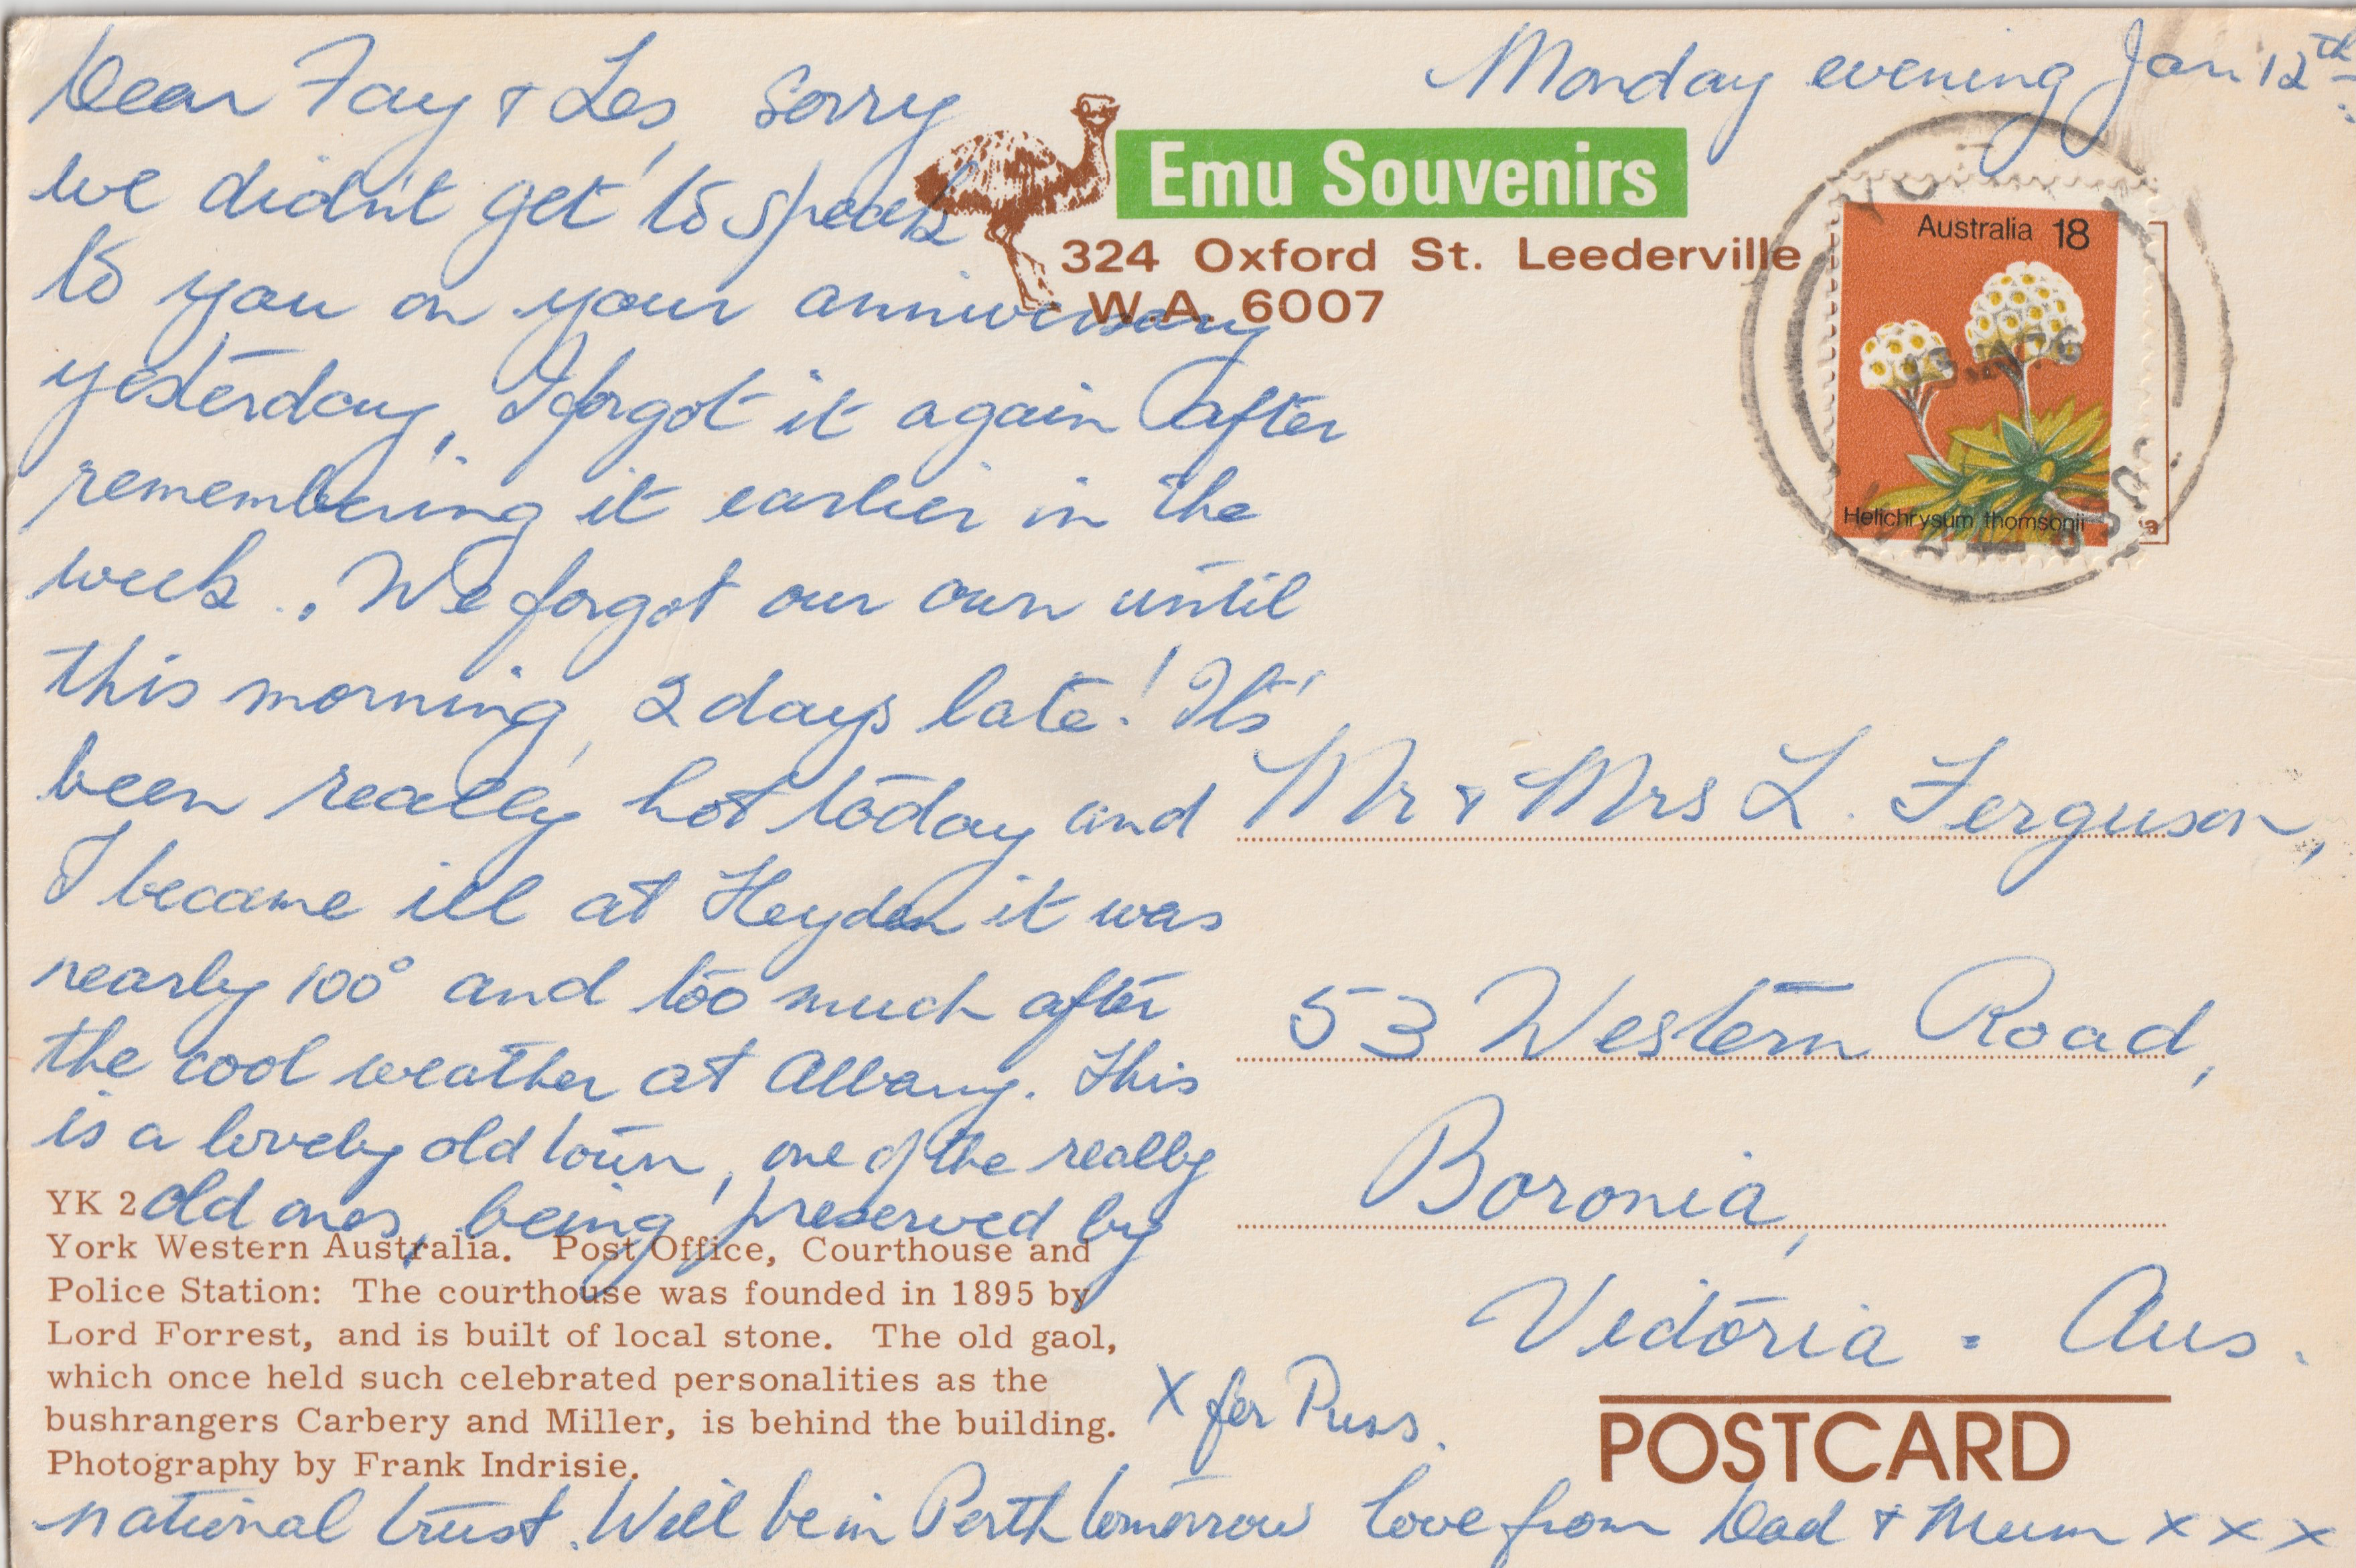 Monday evening Jan 12th.
Dear Fay & Les, Sorry
we didn't get to speak
to you on your anniversary
yesterday, I forgot it again after
remembering it earlier in the
week., We forgot our own until
this morning, 2 days late! It's
been really hot today and
I became ill at Heyden it was
nearly 100° and too much after
the cool weather at Albany. This
is a lovely old town, one of the really
old ones, being preserved by
national trust. Will be in Perth tomorrow Love from Dad & Mum x x x
X for Puss.
Emu Souvenirs
324 Oxford St. Leederville
W.A. 6007
Australia 18
Helichrysum thomsonii
YO
JA76
Mr & Mrs L. Ferguson,
53 Western Road,
Boronia,
Victoria. Aus.
YK 2
York Western Australia. Post Office, Courthouse and
Police Station: The courthouse was founded in 1895 by
Lord Forrest, and is built of local stone. The old gaol,
which once held such celebrated personalities as the
bushrangers Carbery and Miller, is behind the building.
Photography by Frank Indrisie.
POSTCARD